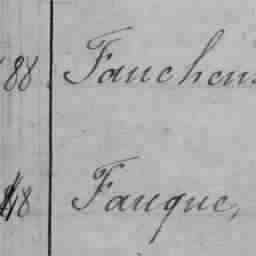 88 Faucheu
48 Fauque,